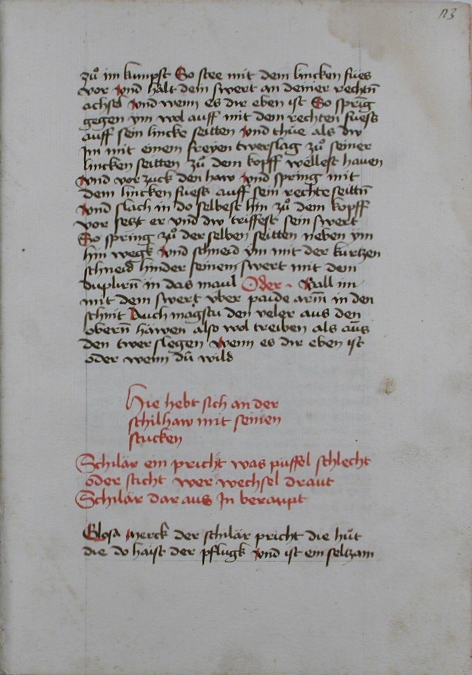 113
zů im kumpst So stee mit dem lincken fues
vor vnd halt dein swert an deiner rechtñ
achsel vnd wenn es dir eben ist So spring
gegen ym wol auff mit dem rechten fuess
auff sein lincke seitten vnd thüe als dw
Jm mit einem freyen twerslag zů seiner
lincken seitten zů dem kopff wellest hauen
vnd vor zuck den haw vnd spring mit
dem lincken fuess auff sein rechte seittñ
vnd slach in do selbest hin zů dem kopff
vor setzt er vnd dw triffest sein swert
So spring zů der selben seitten neben ym
hin wegk vnd schneid ym mit der kurtzen
schneid hinder seinem swert mit dem
duplirñ in das maul Oder vall im
mit dem swert vber paide arm in den
schnit Auch magstu den veler aus den
oberñ hawen also wol treiben als aus
den twer slegen wenn es dir eben ist
oder wenn dü wild
Hie hebt sich an der
schilhaw mit seinen
stucken
Schilär ein pricht was püffel schlecht
oder sticht wer wechsel draut
Schilär dar aus In beraupt
Glosa Merck der schilär pricht die hüt
die do haist der pflugk vnd ist ein seltzam